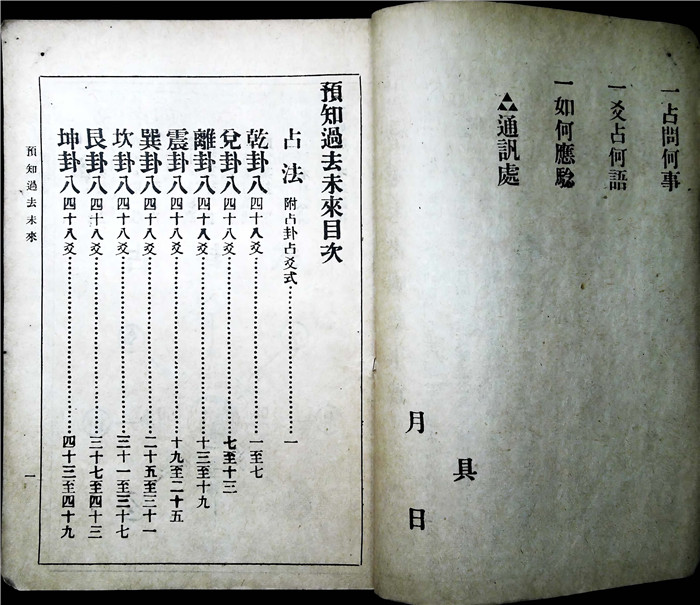 一占問何事
一爻占何語
一如何應驗
通訊處
具
月 日
預知過去未來目次
占法 附占卦占爻式 一
乾卦八 四十八爻 一至七
兌卦八 四十八爻 七至十三
離卦八 四十八爻 十三至十九
震卦八 四十八爻 十九至二十五
巽卦八 四十八爻 二十五至三十一
坎卦八 四十八爻 三十一至三十七
艮卦八 四十八爻 三十七至四十三
坤卦八 四十八爻 四十三至四十九
預知過去未來 一